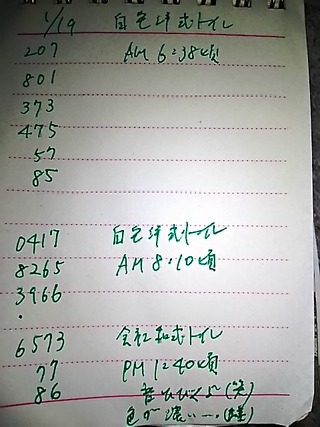 1/19 白色洋式トイレ
207 AM 6:38頃
801
373
475
57
85
0417 白色洋式トイレ
8265 AM 8:10頃
3966
.
6573 会社和式トイレ
77 PM 12:40頃
86 音ひびくよ(笑)
色が濃いー。